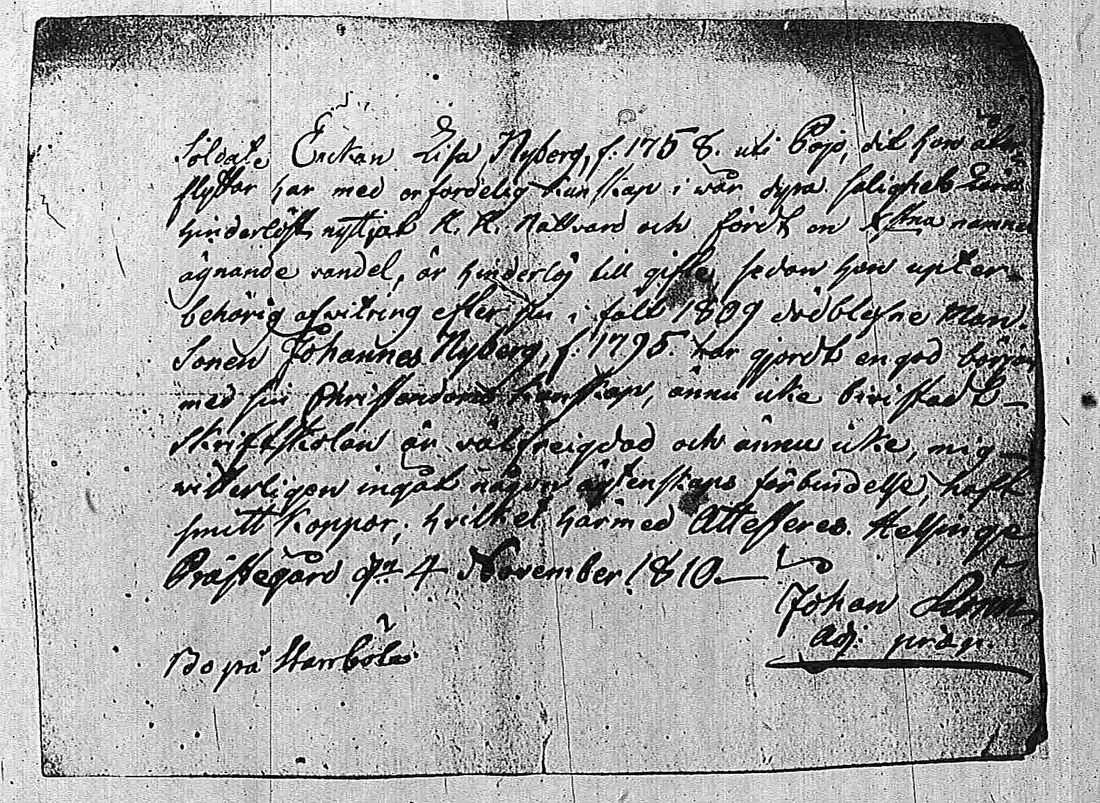 Soldate Enckan Lisa Nyberg, f. 1758. uti Pojo, dit hon åter
flyttar har med erforderlig kunskap i vår dyra salighets Lära
hinderlöst nyttjat H. H. Nattvard och fördt en Xstna namnet
ägnande vandel, är hinderlös till gifte, sedan hon
behörig afvitring efter sin i fält 1809 dödblefne Man.
Sonen Johannes Nyberg, f. 1795. har gjordt en god början
med sin Christendoms kunskap, ännu icke bivistadt
Skriftskolan är välfreigdad och ännu icke, mig
vitterligen ingåt någon ägtenskaps förbindelse, haft
smitt Koppor; hvilket härmed Attesteres. Helsinge
Prästegård dn 4 November 1810.
Johan
Adj. præp.
Bo på